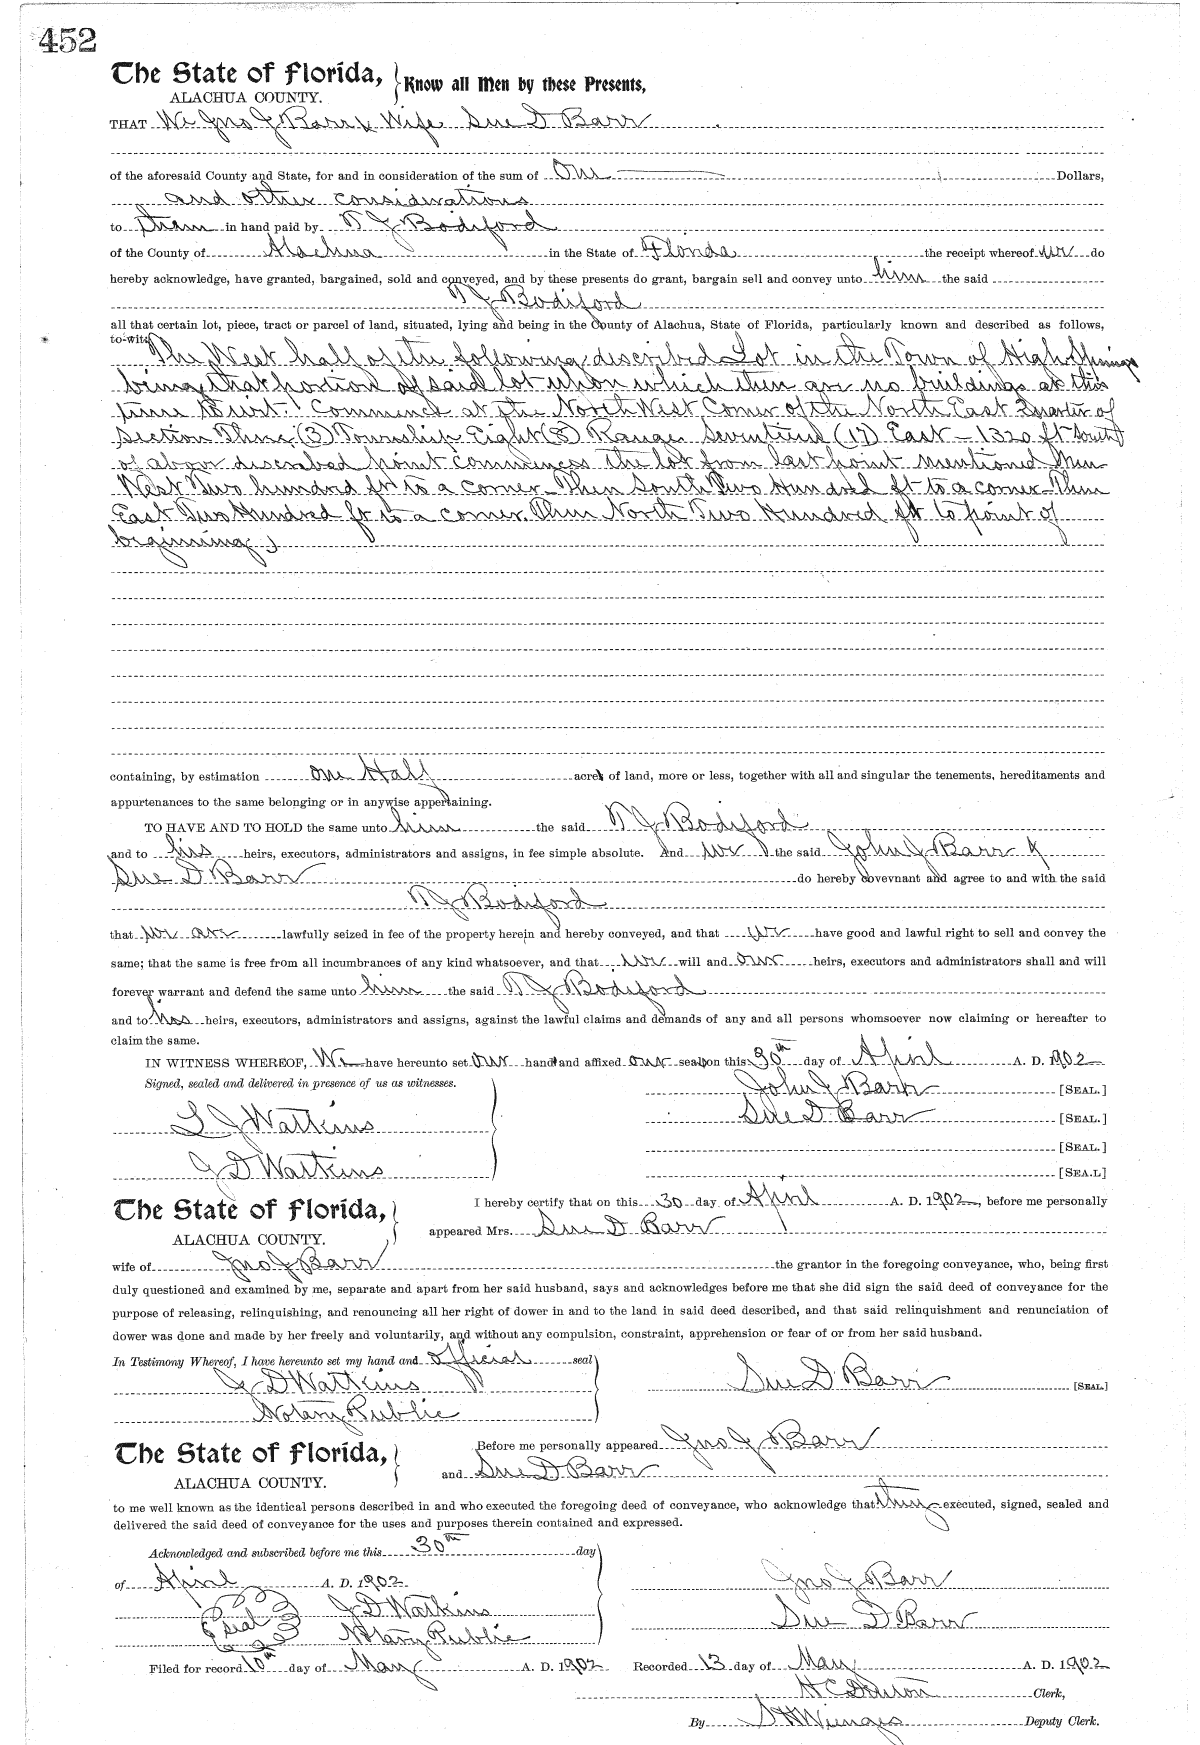 452
The State of Florida, Know all Men by these Presents,
ALACHUA COUNTY.
THAT We Jno J Barr & Wife Sue D Barr
of the aforesaid County and State, for and in consideration of the sum of One Dollars,
and other considerations
to them in hand paid by J Bodiford
of the County of Alachua in the State of Florida the receipt whereof we do
hereby acknowledge, have granted, bargained, sold and conveyed, and by these presents do grant, bargain sell and convey unto him the said
J Bodiford
all that certain lot, piece, tract or parcel of land, situated, lying and being in the County of Alachua, State of Florida, particularly known and described as follows,
to-wit: The West half of the following described Lot in the Town of High Springs
being that portion of said lot upon which there are no buildings at this
time Commence at the North West Corner of the North East Quarter of
Section Three (3) Township Eight (8) Range Seventeen (17) East - 1320 ft South
of above described point commences the lot from last point mentioned Then
West Two hundred ft to a corner - Then South Two Hundred ft to a corner - Then
East Two Hundred ft to a corner. Then North Two Hundred ft to point of
beginning)
containing, by estimation one Half acre of land, more or less, together with all and singular the tenements, hereditaments and
appurtenances to the same belonging or in anywise appertaining.
TO HAVE AND TO HOLD the same unto him the said J Bodiford
and to his heirs, executors, administrators and assigns, in fee simple absolute. And we the said John J Barr &
Sue D Barr do hereby covevnant and agree to and with the said
J Bodiford
that we are lawfully seized in fee of the property herein and hereby conveyed, and that we have good and lawful right to sell and convey the
same; that the same is free from all incumbrances of any kind whatsoever, and that we will and our heirs, executors and administrators shall and will
forever warrant and defend the same unto him the said J Bodiford
and to his heirs, executors, administrators and assigns, against the lawful claims and demands of any and all persons whomsoever now claiming or hereafter to
claim the same.
IN WITNESS WHEREOF, We have hereunto set our hand and affixed our seal on this 30th day of April A. D. 1902
Signed, sealed and delivered in presence of us as witnesses. John J Barr [SEAL.]
Sue D Barr [SEAL.]
L J Watkins
[SEAL.]
J D Watkins [SEA.L]
The State of Florida, I hereby certify that on this 30 day of April A. D. 1902, before me personally
ALACHUA COUNTY. appeared Mrs. Sue D Barr
wife of Jno J Barr the grantor in the foregoing conveyance, who, being first
duly questioned and examined by me, separate and apart from her said husband, says and acknowledges before me that she did sign the said deed of conveyance for the
purpose of releasing, relinquishing, and renouncing all her right of dower in and to the land in said deed described, and that said relinquishment and renunciation of
dower was done and made by her freely and voluntarily, and without any compulsion, constraint, apprehension or fear of or from her said husband.
In Testimony Whereof, I have hereunto set my hand and official seal
J D Watkins Sue D Barr [SEAL.]
Notary Public
The State of Florida, Before me personally appeared Jno J Barr
ALACHUA COUNTY. and Sue D Barr
to me well known as the identical persons described in and who executed the foregoing deed of conveyance, who acknowledge that they executed, signed, sealed and
delivered the said deed of conveyance for the uses and purposes therein contained and expressed.
Acknowledged and subscribed before me this 30th day
of April A. D. 1902. Jno J Barr
seal J D Watkins Sue D Barr
Notary Public
Filed for record 10th day of May A. D. 1902 Recorded 13 day of May A. D. 1902
H C Clerk,
By S H Wienges Deputy Clerk.